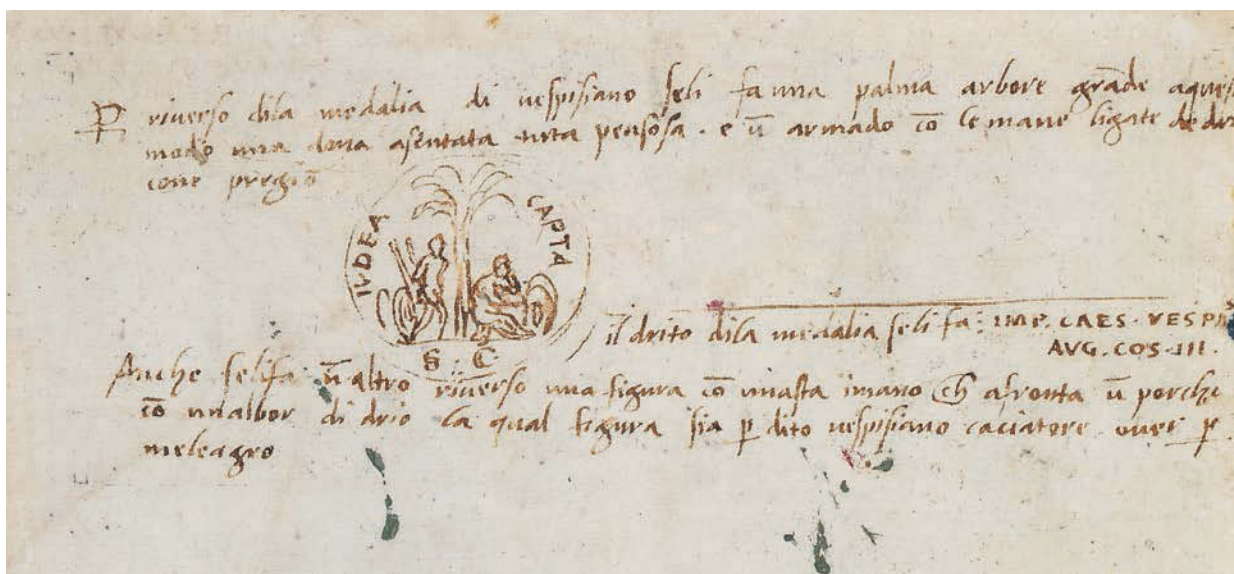 P riverso dila medalia di vespisiano seli fa una palma arbore grāde aquest
modo una dona asentata tuta pensosa · e ū armado cō le mane ligate de dri
come pregiō
IVDEA CAPTA
S · C
il drito dila medalia seli fa : IMP. CAES. VESPA
AVG. COS. III.
Anche seli fa ūaltro riverso una figura cō unasta imano ch afronta ū porcho
cō unalbor di drio la qual figura sia p dito vespisiano caciatore over p
meleagro